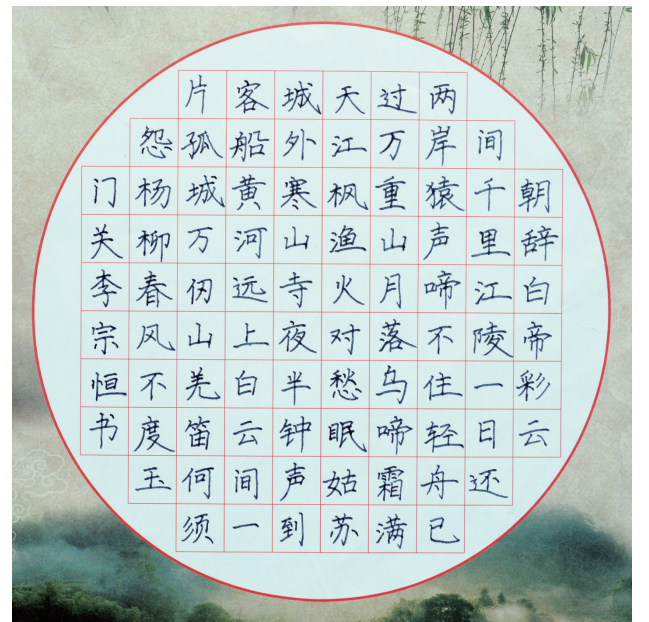 朝辞白帝彩云
间千里江陵一日还
两岸猿声啼不住轻舟已
过万重山月落乌啼霜满
天江枫渔火对愁眠姑苏
城外寒山寺夜半钟声到
客船黄河远上白云间一
片孤城万仞山羌笛何须
怨杨柳春风不度玉
门关李宗恒书